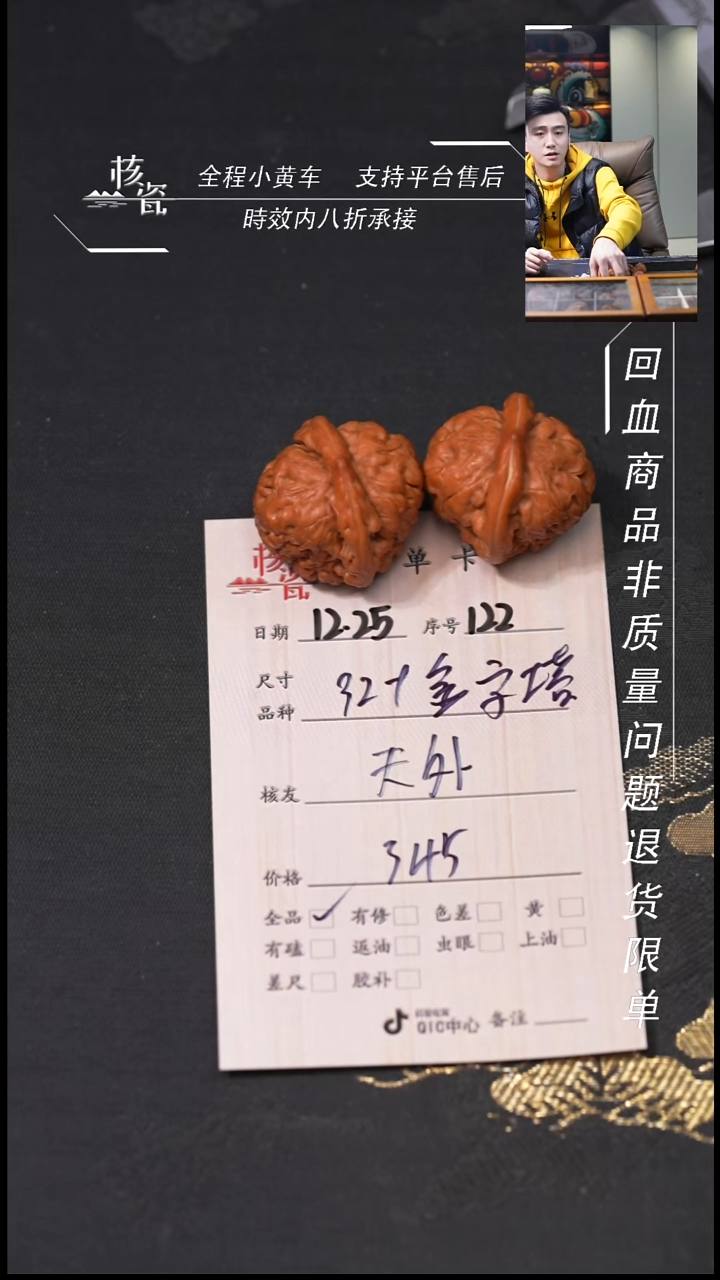 核瓷
全程小黄车 支持平台售后
時效内八折承接
回血商品非质量问题退货限单
核瓷 单卡
日期 12.25 序号 122
尺寸
品种 32+金字塔
核友 天外
价格 345
全品 ✓ 有修 色差 黄
有磕 返油 虫眼 上油
差尺 胶补
QIC中心 备注